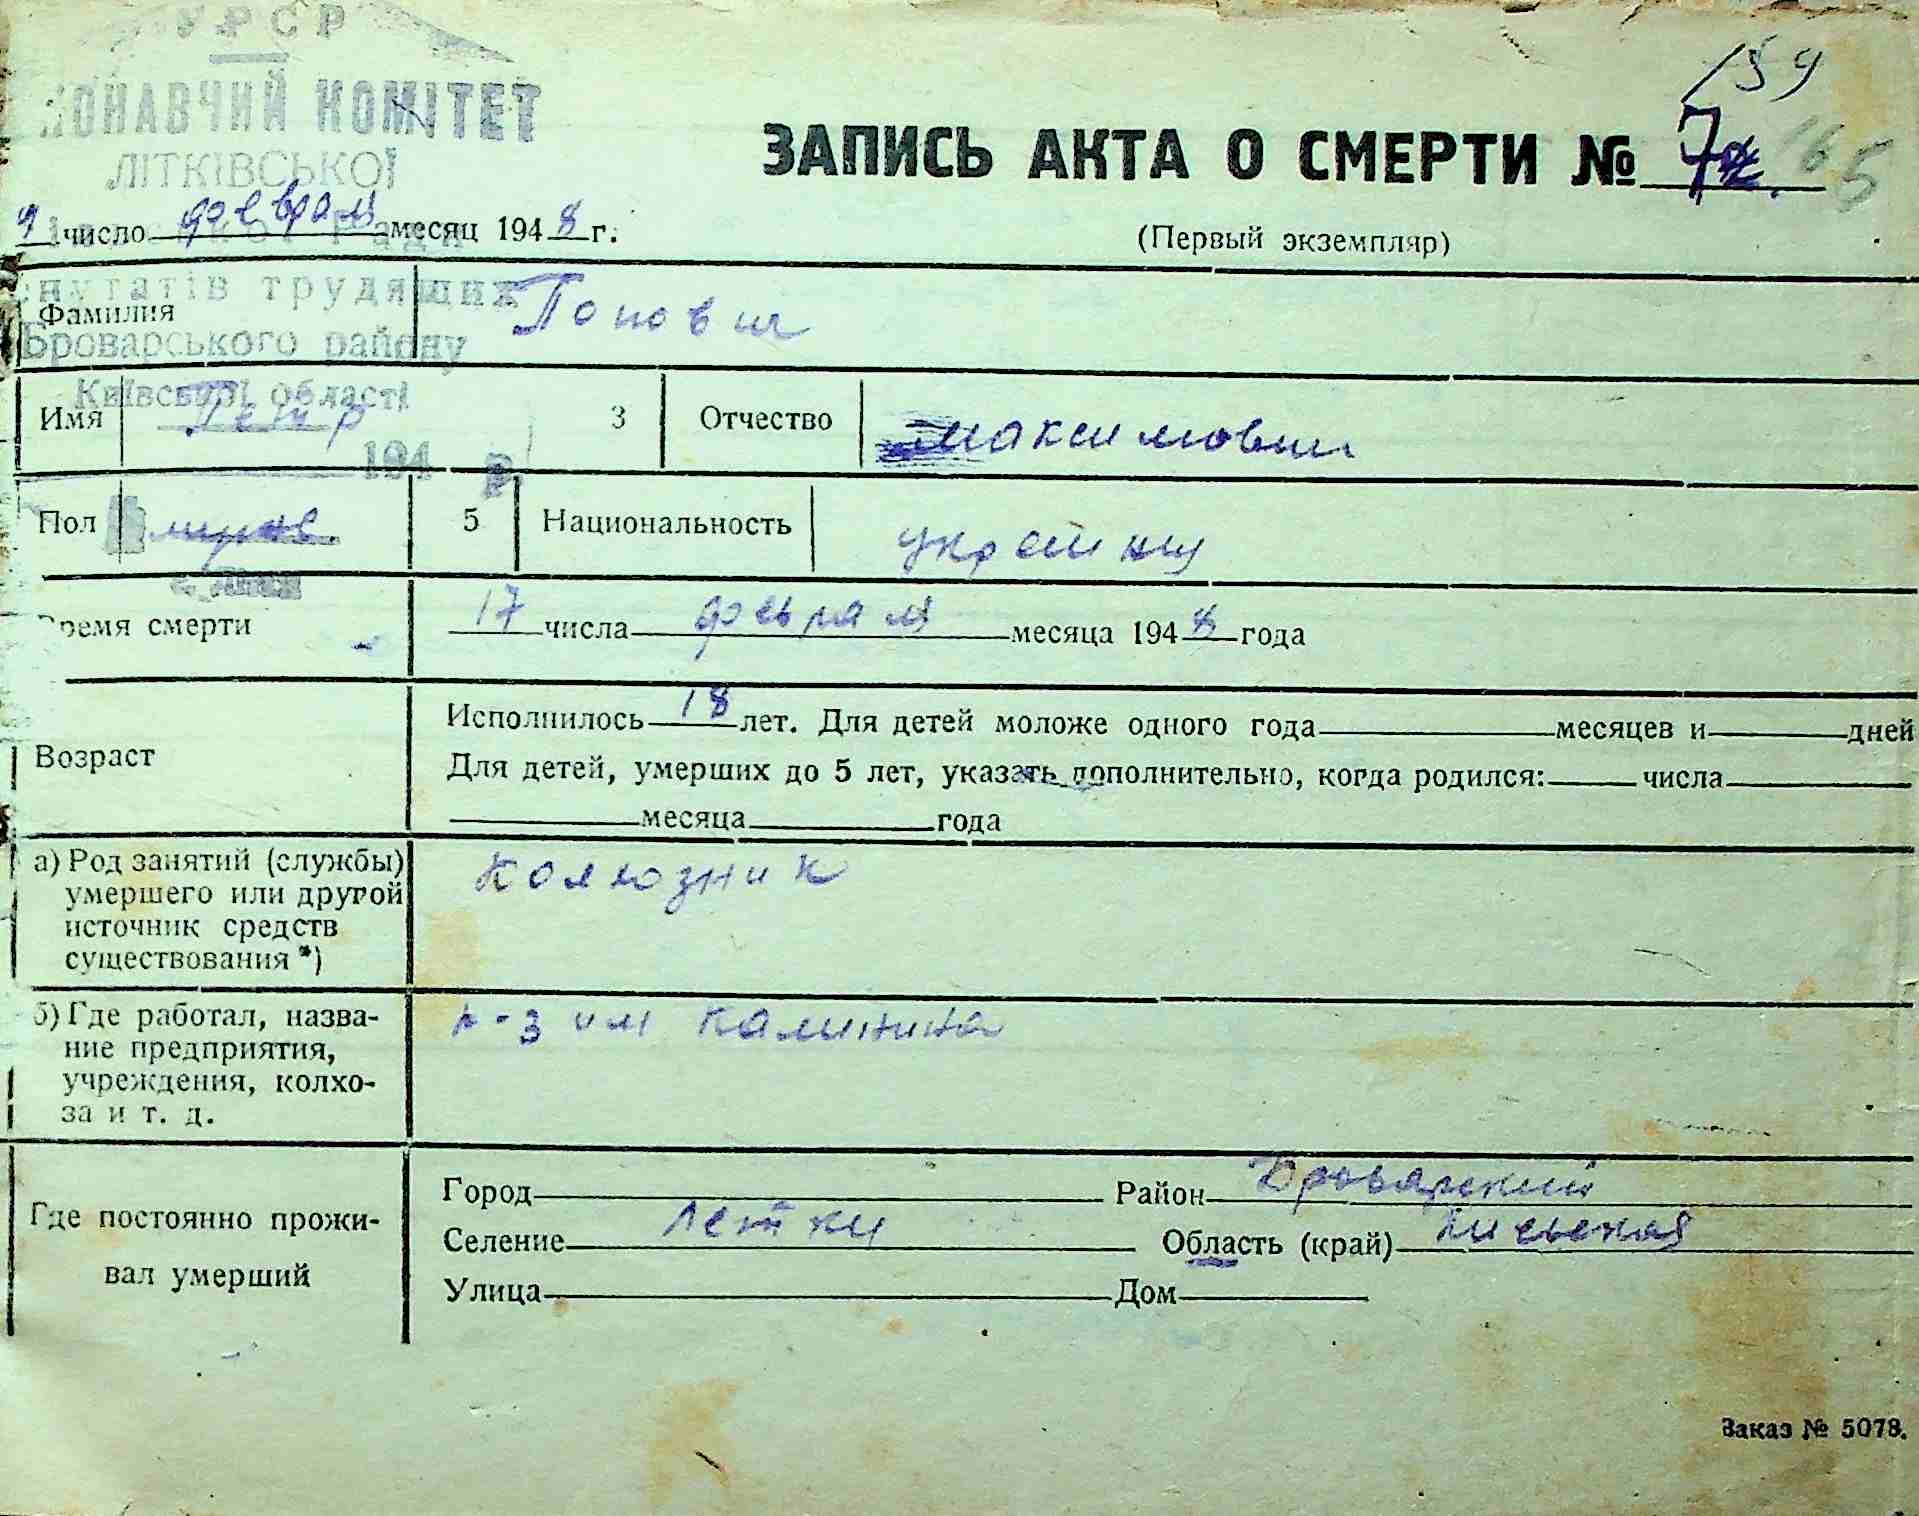 УРСР
КОНАВЧИЙ КОМІТЕТ
ЛІТКІВСЬКОЇ
Ради
путатів трудящих
Броварського району
Київської області
194 р.
159
ЗАПИСЬ АКТА О СМЕРТИ № 7 165
число февраля месяц 1948 г.
(Первый экземпляр)
Фамилия Попович
Имя Петр 3 Отчество Максимович
Пол муж. 5 Национальность украинц
Время смерти 17 числа февраля месяца 1948 года
Возраст
Исполнилось 18 лет. Для детей моложе одного года месяцев и дней
Для детей, умерших до 5 лет, указать дополнительно, когда родился: числа
месяца года
а) Род занятий (службы)
умершего или другой
источник средств
существования *)
Колхозник
б) Где работал, назва-
ние предприятия,
учреждения, колхо-
за и т. д.
к-з им Калинина
Где постоянно прожи-
вал умерший
Город Район Броварский
Селение Летки Область (край) Киевская
Улица Дом
Заказ № 5078.